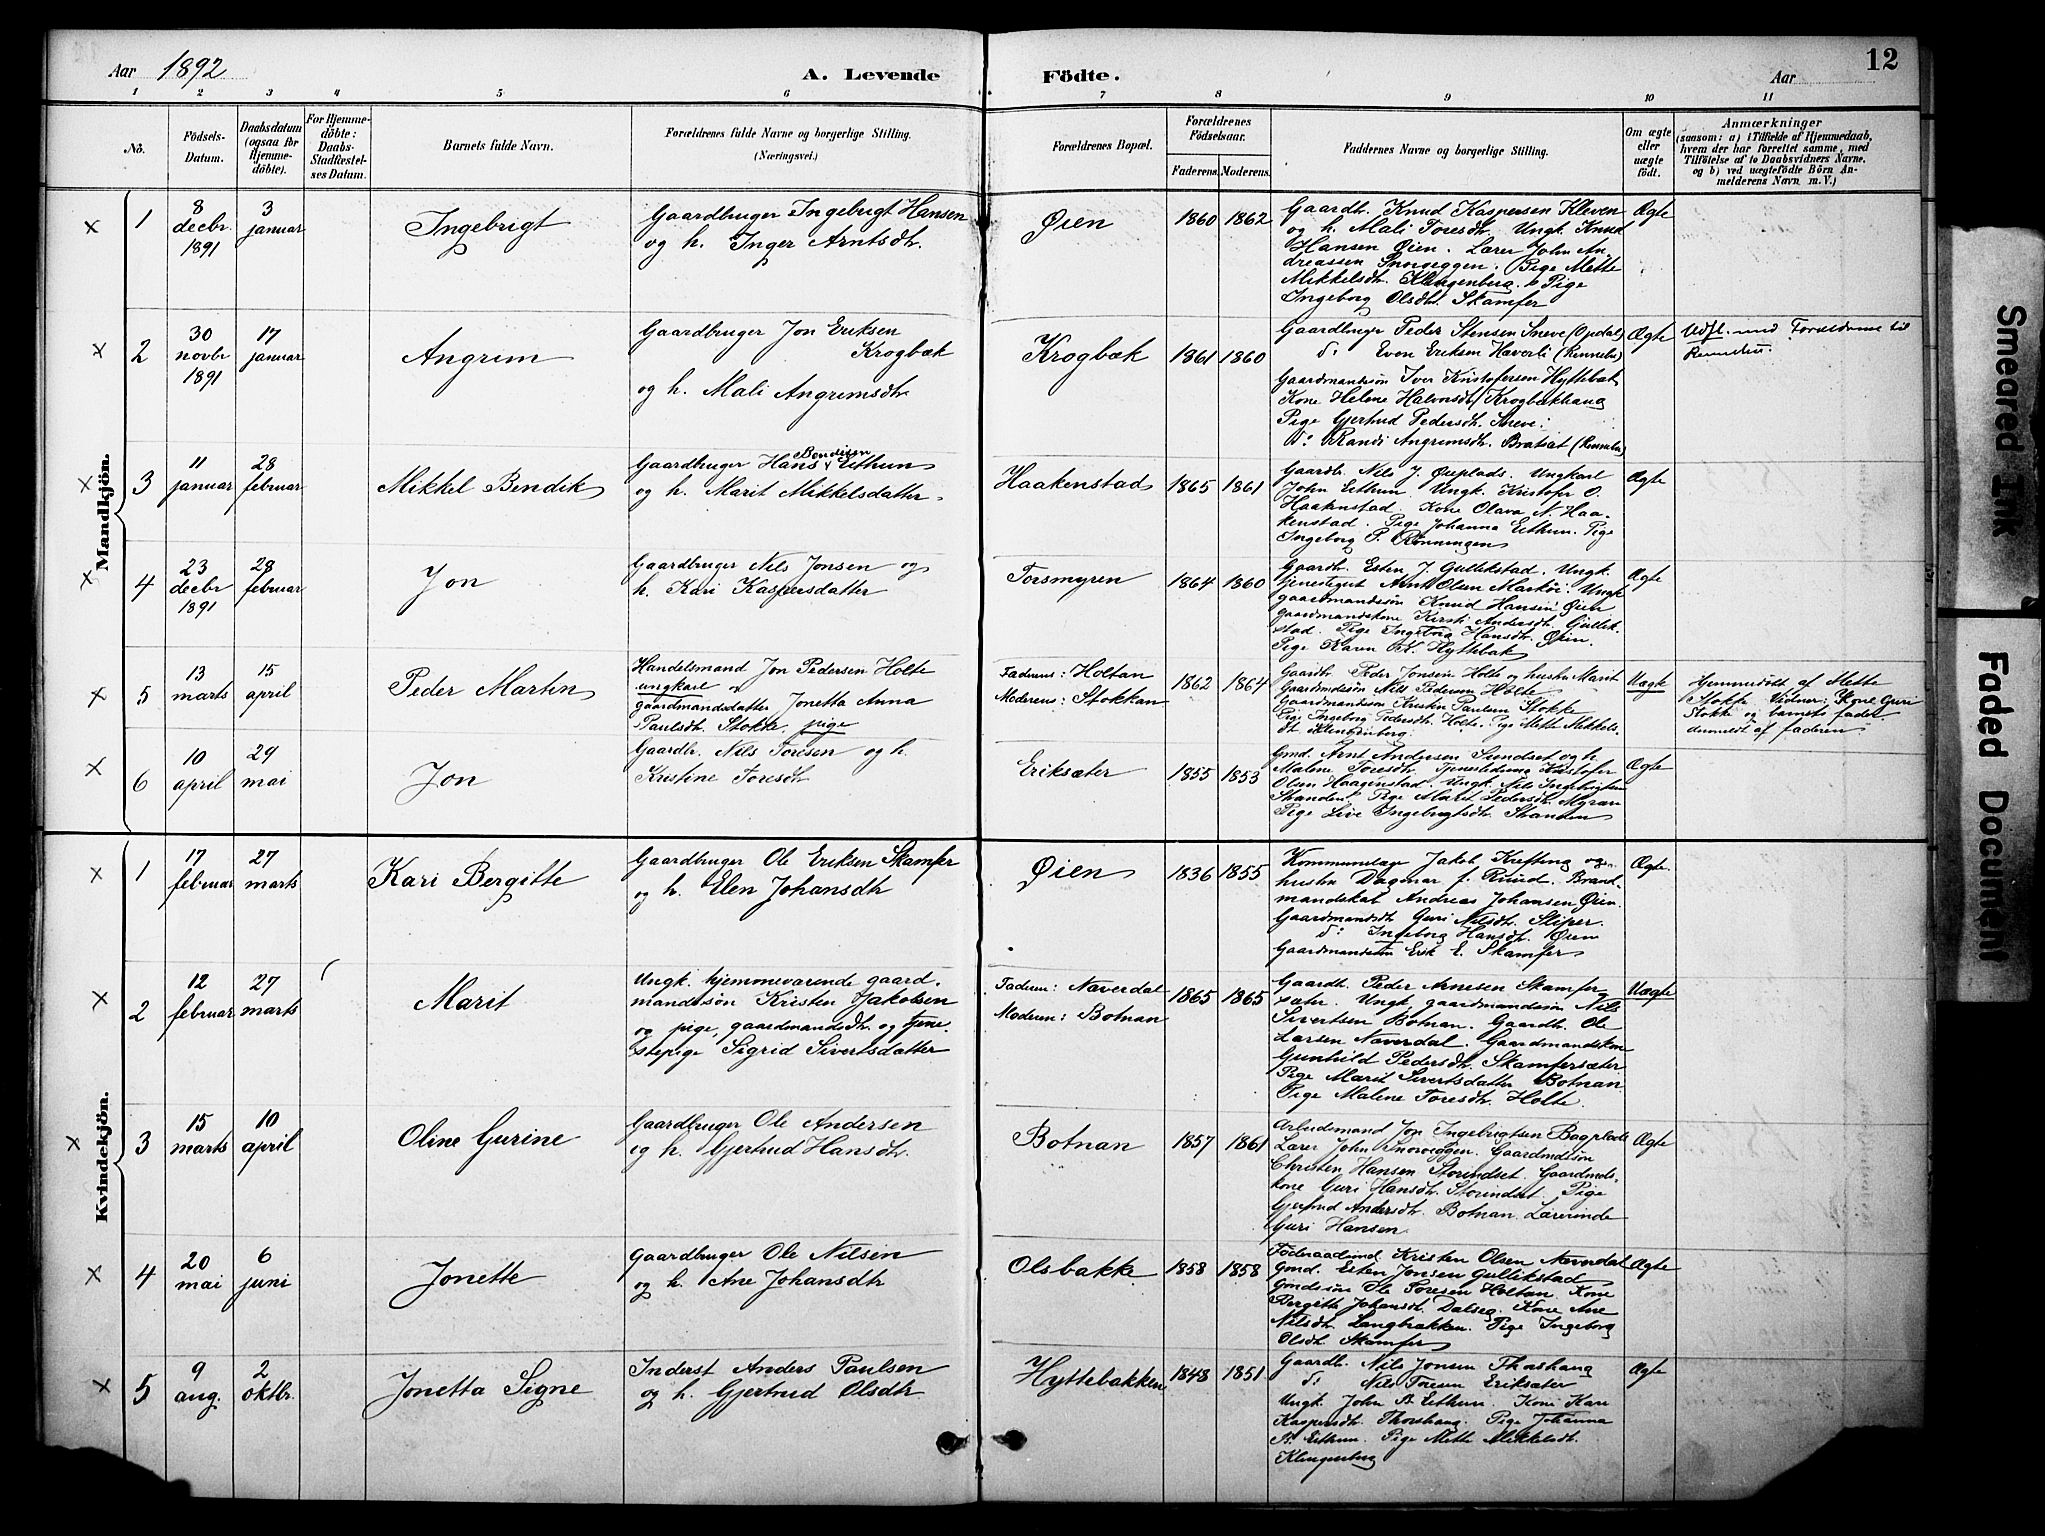 Aar 1892
A. Levende Födte.
Aar
12
1 2 3 4 5 6 7 8 9 10 11
No.
Födsels-Datum.
Daabsdatum (ogsaa for Hjemme-döbte).
For Hjemme-döbte: Daabs-Stadfæstel-ses Datum.
Barnets fulde Navn.
Forældrenes fulde Navne og borgerlige Stilling. (Næringsvei.)
Forældrenes Bopæl.
Forældrenes Födselsaar.
Faderens. Moderens.
Faddernes Navne og borgerlige Stilling.
Om ægte eller uægte födt.
Anmærkninger
(saasom: a) i Tilfælde af Hjemmedaab, hvem der har forrettet samme, med Tilföielse af to Daabsvidners Navne. og b) ved uægtefödte Börn An-melderens Navn m. V.)
Mandkjön.
1
8 decbr. 1891
3 januar
Ingebrigt
Gaardbruger Ingebrigt Hansen
og h. Inger Arntsdtr.
Øien
1860 1862
Gaardb. Knud Kaspersen Kleven
og h. Mali Toresdtr. Ungk. Knud
Hansen Øien. Lærer John An-
dreassen Snoveggen. Pige Mette
Mikkelsdtr. Klingenberg. Pige
Ingeborg Olsdtr. Skamfer
Ægte
2
30 novbr 1891
17 januar
Angrim
Gaardbruger Jon Eriksen
Krogbæk
og h. Mali Angrimsdtr
Krogbæk
1861 1860
Gaardbruger Peder Stensen Sneve (Opdal)
d: Even Eriksen Haverli (Rennebu)
Gaardmandssøn Iver Kristofersen Hyttebak
Kone Helene Halvorsdtr. Krogbækhaug
Pige Gjertrud Pedersdtr. Sneve.
d: Randi Angrimsdtr. Bratsat (Rennebu)
Ægte
Udfl. med Forældrene til
Rennebu.
3
11 januar
28 februar
Mikkel Bendik
Gaardbruger Hans Bendiksen Eithun
og h. Marit Mikkelsdatter
Haakenstad
1865 1861
Gaardb. Nils J. Øieplads. Ungkarl
John Eithun. Ungk. Kristofer O.
Haakenstad. Kone Olava N. Haa-
kenstad. Pige Johanna Eithun. Pige
Ingeborg P. Rønningen
Ægte
4
23 decbr 1891
28 februar
Jon
Gaardbruger Nils Jonsen og
h. Kari Kaspersdatter
Torsmyren
1864 1860
Gaardb. Esten J. Gullikstad. Ungk.
tjenestegut Arnt Olsen Markøi. Ungk
gaardmandssøn Knud Hansen Øien
Gaardmandskone Kirsti Andersdtr. Gullik-
stad. Pige Ingeborg Hansdtr. Øien.
Pige Karn K. Hyttebak
Ægte
5
13 marts
15 april
Peder Martin
Handelsmand Jon Pedersen Holte
ungkarl og
gaardmandsdatter Jonetta Anna
Paulsdtr. Stokke, pige
Faderens: Holtan
Moderens: Stokkan
1862 1864
Gaardb Peder Jonsen Holte og hustru Marit
Gaardmdssøn Nils Pedersen Holte
Gaardmandssøn Kristen Paulsen Stokke
Pige Ingeborg Pedersdtr. Holte. Pige Mette Mikkels-
dtr. Klingenberg.
Uægte
Hjemmedøbt af Mette
Stokke. Vidner: Kone Guri
Stokke og barnets fader
anmeldt af faderen
6
10 april
29 mai
Jon
Gaardb. Nils Toresen og h.
Kristine Toresdtr
Eriksæter
1855 1853
Gmd. Arnt Andersen Sundset og h.
Malene Toresdtr. Tjenestedreng Kristofer
Olsen Haagenstad. Ungk. Nils Ingebrigtsen
Skanden. Pige Marit Pedersdtr. Myran
Pige Live Ingebrigtsdtr. Skanden
Ægte
Kvindekjön.
1
17 februar
27 marts
Kari Bergitte
Gaardbruger Ole Eriksen Skamfer
og h. Elen Johansdtr
Øien
1836 1855
Kommunelæge Jakob Krefting og
hustru Dagmar f. Ruud. Brand-
mandskab Andreas Johansen Øien.
Gaardmandsdtr Guri Nilsdtr. Sliper.
d: Ingeborg Hansdtr. Øien
Gaardmandssøn Erik E. Skamfer
Ægte.
2
12 februar
27 marts
Marit
Ungk. hjemmeværende gaard-
mandssøn Kristen Jakobsen
og pige, gaardmandsdtr. og tjene-
stepige Sigrid Sivertsdatter
Faderens: Næverdal
Moderens: Botnan
1865 1865
Gaardb. Peder Arnesen Skamfer
sæter. Ungk. gaardmandssøn Nils
Sivertsen Botnan. Gaardb. Ole
Larsen Næverdal. Gaardmandskone
Gunhild Pedersdtr. Skamfersæter
Pige Marit Sivertsdatter Botnan
Pige Malene Toresdtr. Holte.
Uægte
3
15 marts
10 april
Oline Gurine
Gaardbruger Ole Andersen
og h. Gjertrud Hansdtr.
Botnan
1857 1861
Arbeidsmand Jon Ingebrigtsen Bagplads
Lærer John Snoveggen. Gaardmdssøn
Christen Hansen Storindset. Gaardmds-
kone Guri Hansdtr. Storindset. Pige
Gjertrud Andersdtr. Botnan. Lærerinde
Guri Hansen
Ægte
4
20 mai
6 juni
Jonette
Gaardbruger Ole Nilsen
og h. Ane Johansdtr
Olsbakke
1858 1858
Føderaadsmd. Kristen Olsen Næverdal
Gmd. Esten Jonsen Gullikstad
Gmdssøn Ole Toresen Holtan. Kone
Bergitte Johansdtr. Dalseg. Kone Ane
Nilsdtr. Langbakken. Pige Ingeborg
Olsdtr. Skamfer
Ægte
5
9 aug.
2 oktbr.
Jonetta Signe
Inderst Anders Paulsen
og h. Gjertrud Olsdtr
Hyttebakken
1848 1851
Gaardb. Nils Jonsen Thoshaug
d: Nils Toresen Eriksæter
Ungk. John B. Eithun. Kone Kari
Kaspersdtr. Thorshaug. Pige Johanna
B. Eithun. Pige Mette Mikkelsdtr.
Klingenberg
Ægte
Smeared Ink
Faded Document